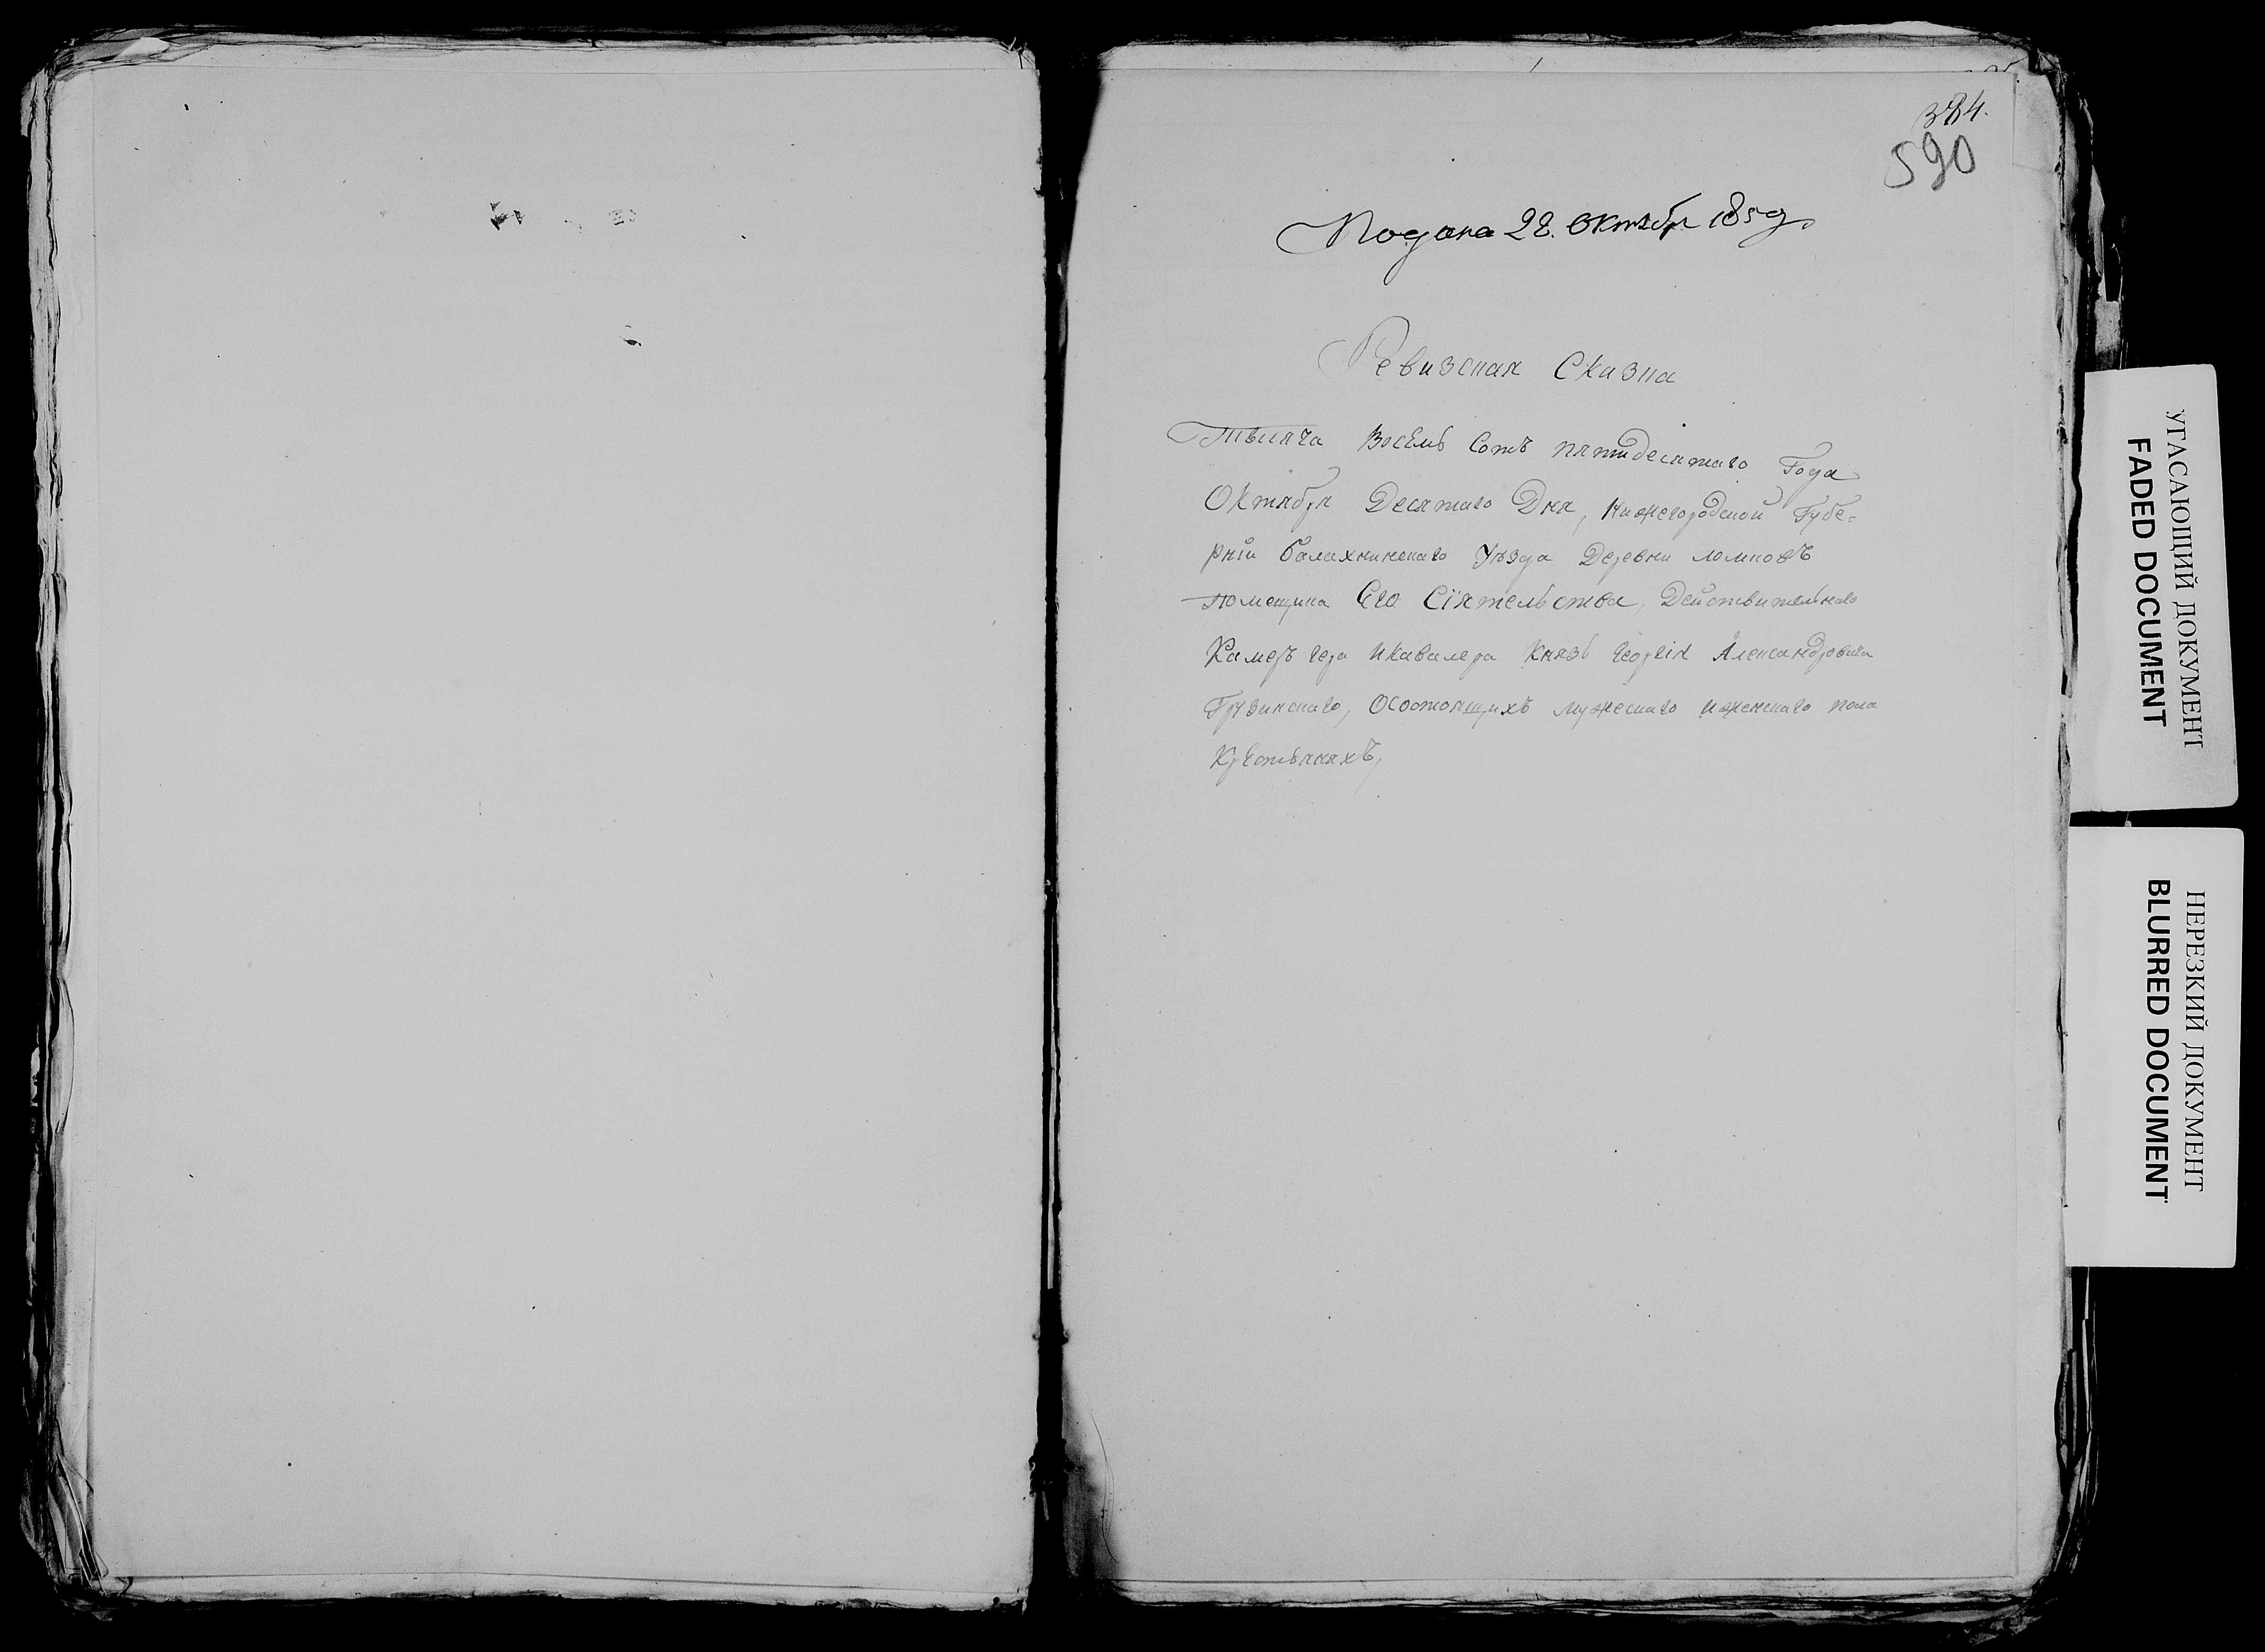 384.
590
Подана 28. Октября 1850
Ревизская Сказка
Тысяча Восемь Сотъ пятидесятаго Года
Октября Десятаго Дня, Нижегородской Губе=
рніи балахнинскаго Уѣзда Деревни ломковъ
помещика Его Сіятельства, Действительнаго
Камеръ гера и кавалера Князь Георгія Александровича
Грузинскаго, Осостоящихъ мужескаго и женскаго пола
Крестьянахъ,
УГАСАЮЩИЙ ДОКУМЕНТ
FADED DOCUMENT
НЕРЕЗКИЙ ДОКУМЕНТ
BLURRED DOCUMENT